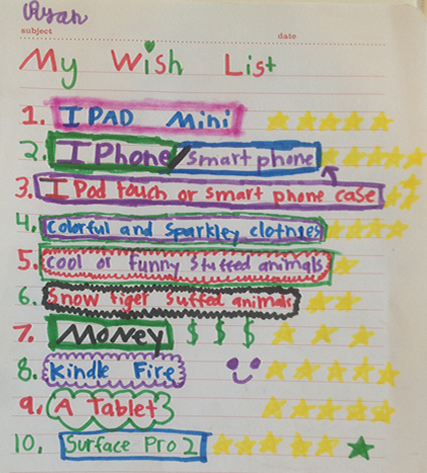 Ryah
subject
date
My Wish List
1. I PAD Mini
2. I Phone/smart phone
3. I Pod touch or smart phone case
4. Colorful and Sparkley clothies
5. Cool or Funny Stuffed animals
6. Snow tiger Suffed animals
7. Money $ $ $
8. Kindle Fire
9. A Tablet
10. Surface Pro 2